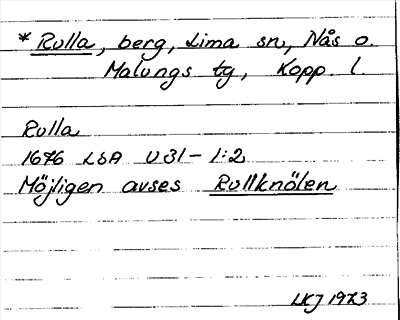 * Rulla, berg, Lima sn, Nås o.
Malungs tg, Kopp. l.
Rulla
1676 LSA U31-1:2
Möjligen avses Rullknölen
LKJ 1973